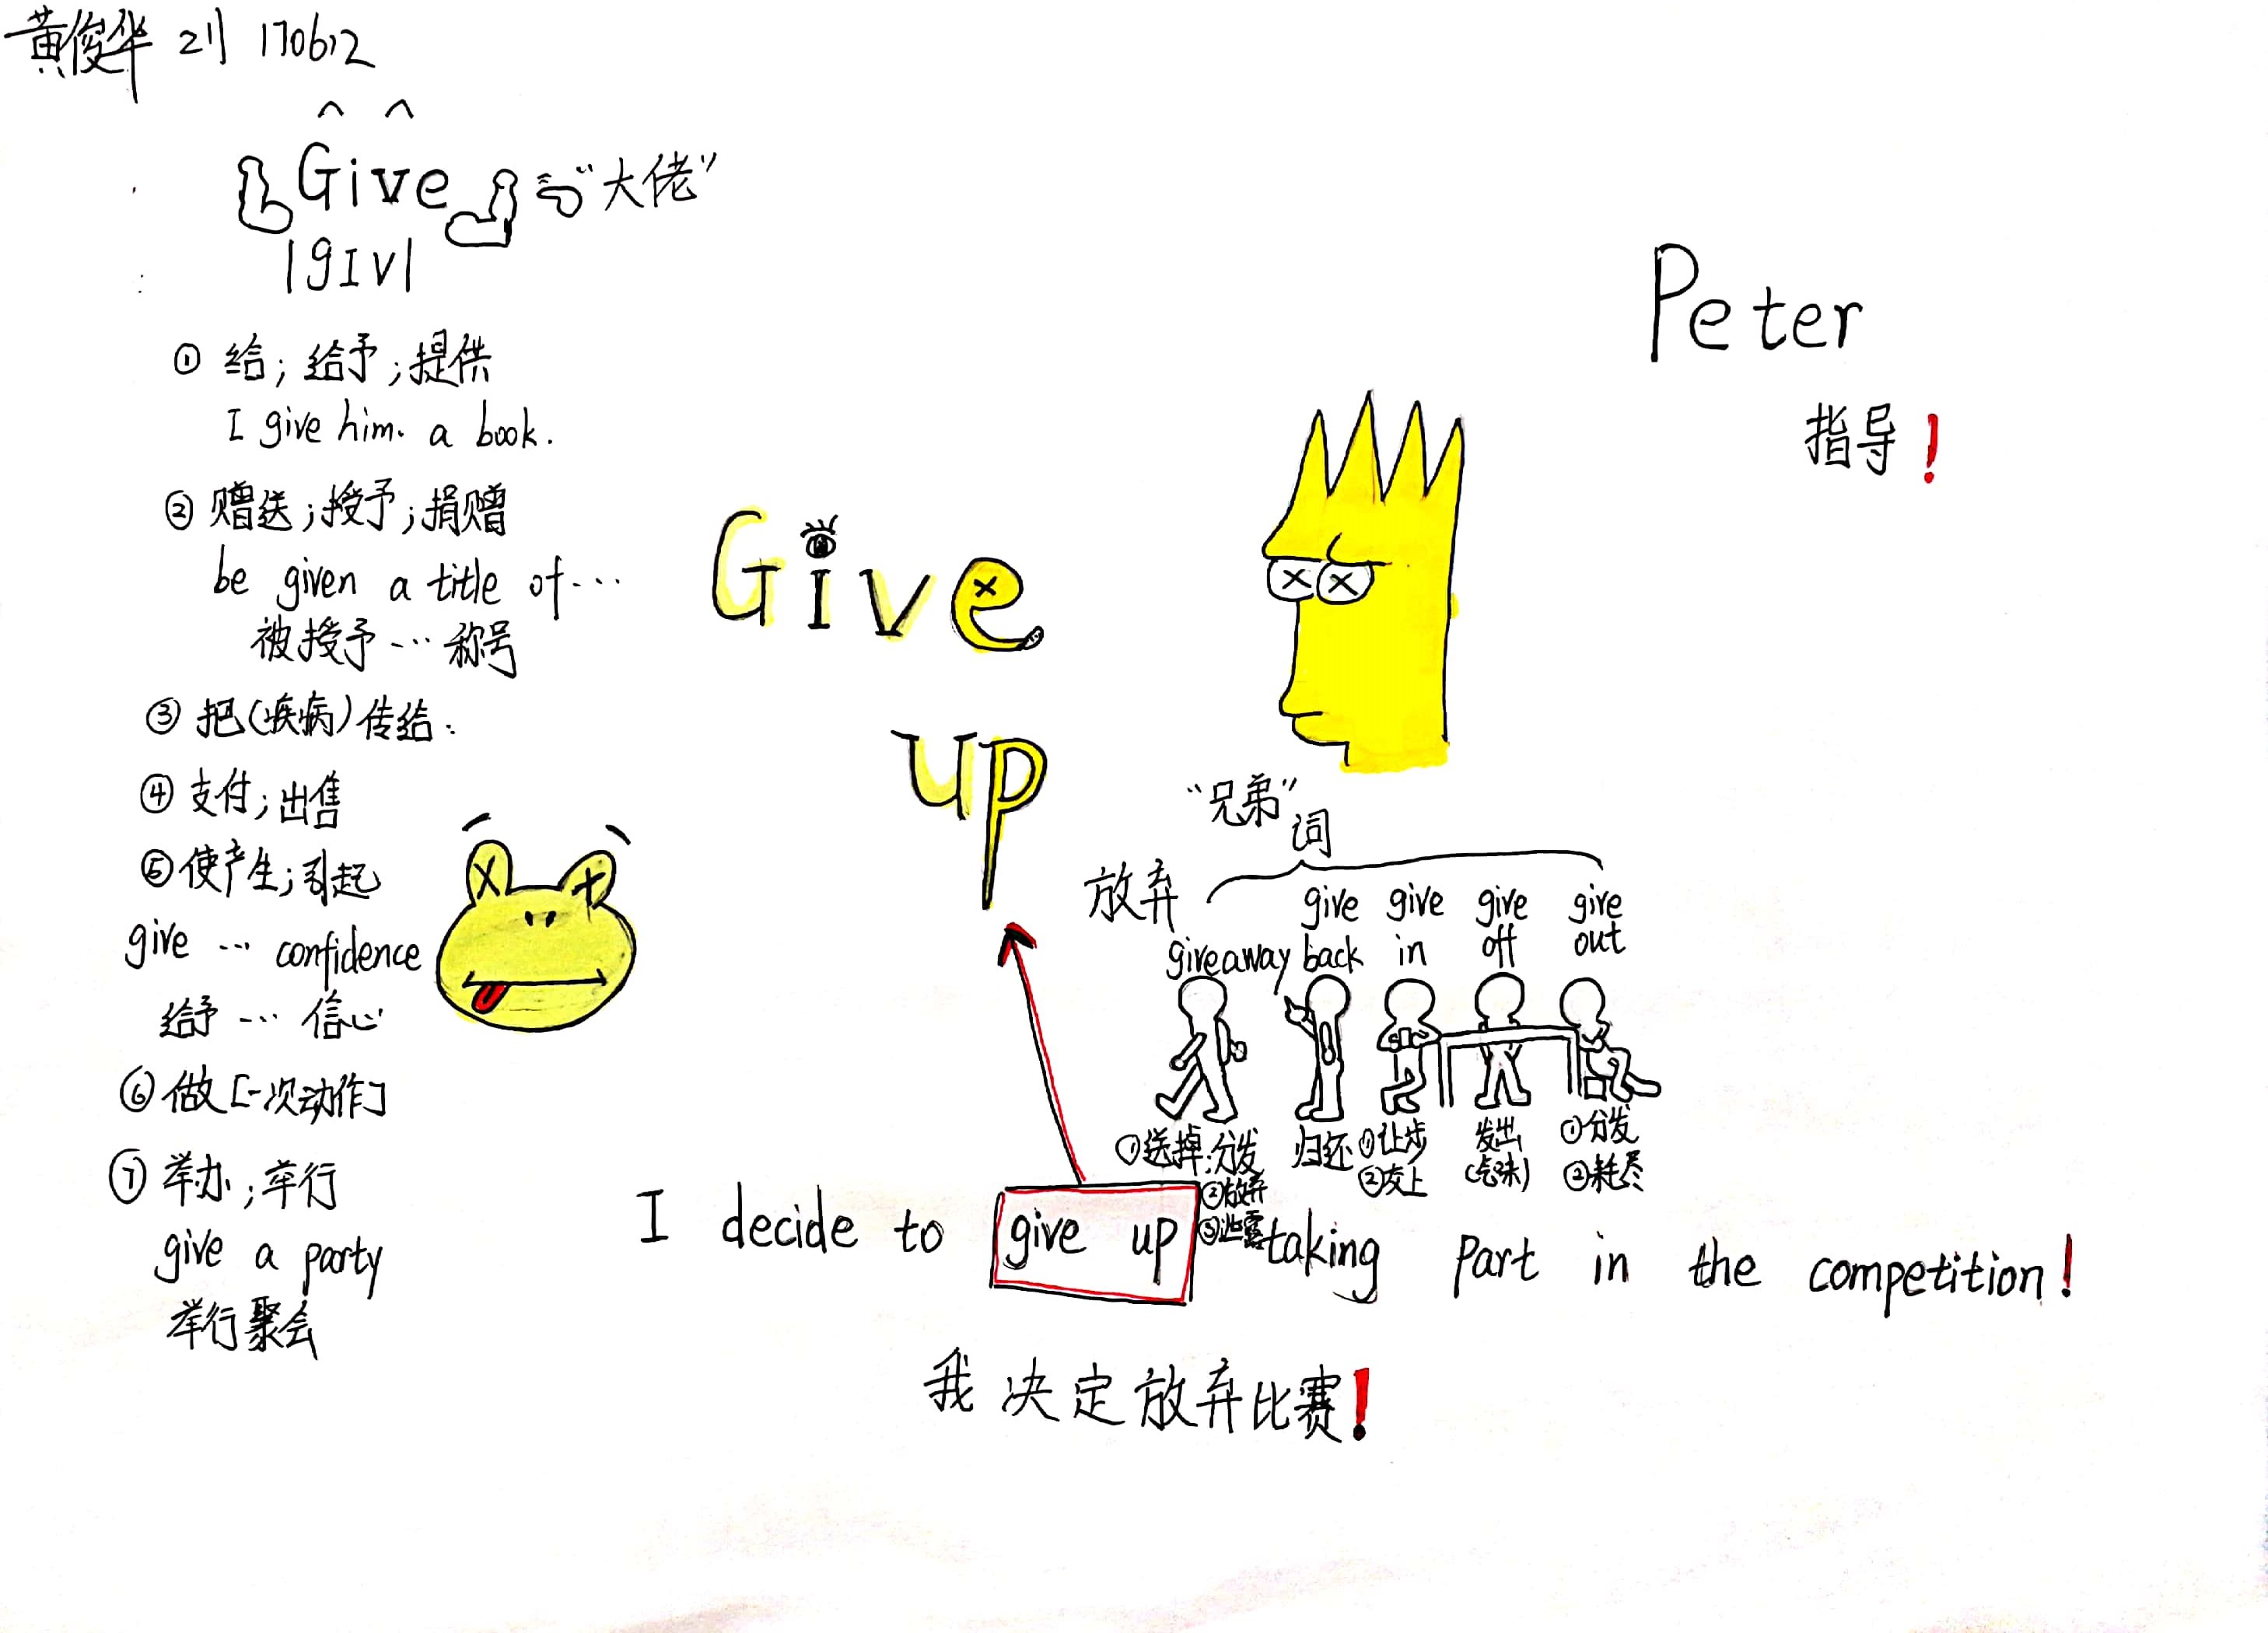 黄俊华 211 170612
Give "大佬"
|gIv|
① 给; 给予; 提供
I give him. a book.
② 赠送; 授予; 捐赠
be given a title of…
被授予…称号
③ 把(疾病)传给.
④ 支付; 出售
⑤ 使产生; 引起
give … confidence
给予 … 信心
⑥ 做[一次动作]
⑦ 举办; 举行
give a party
举行聚会
Give
up
Peter
指导!
"兄弟"词
放弃
give away
①送掉;分发
②放弃
③泄露
give back
归还
give in
①让步
②交上
give off
发出
(气味)
give out
①分发
②耗尽
I decide to give up taking part in the competition!
我决定放弃比赛!